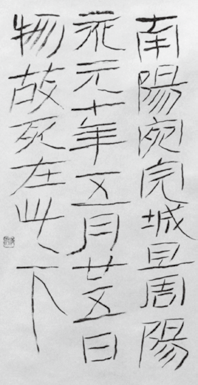 南陽宛完城旦周陽
永元十年五月廿五日
物故死在此下